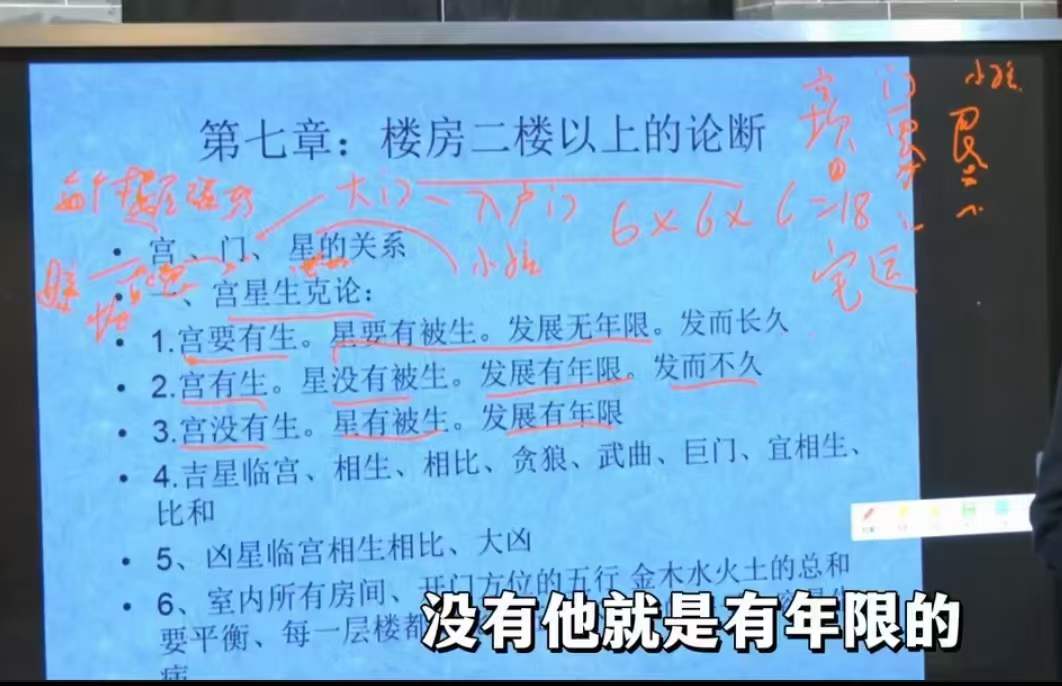 第七章：楼房二楼以上的论断
大门一入户门 6×6×6=18
宅运
• 宫、门、星的关系
小
• 一、宫星生克论：
• 1.宫要有生。星要有被生。发展无年限。发而长久
• 2.宫有生。星没有被生。发展有年限。发而不久
• 3.宫没有生。星有被生。发展有年限
• 4.吉星临宫、相生、相比、贪狼、武曲、巨门、宜相生、
比和
• 5、凶星临宫相生相比、大凶
• 6、室内所有房间、开门方位的五行 金木水火土的总和
要平衡、每一层楼都
病
没有他就是有年限的